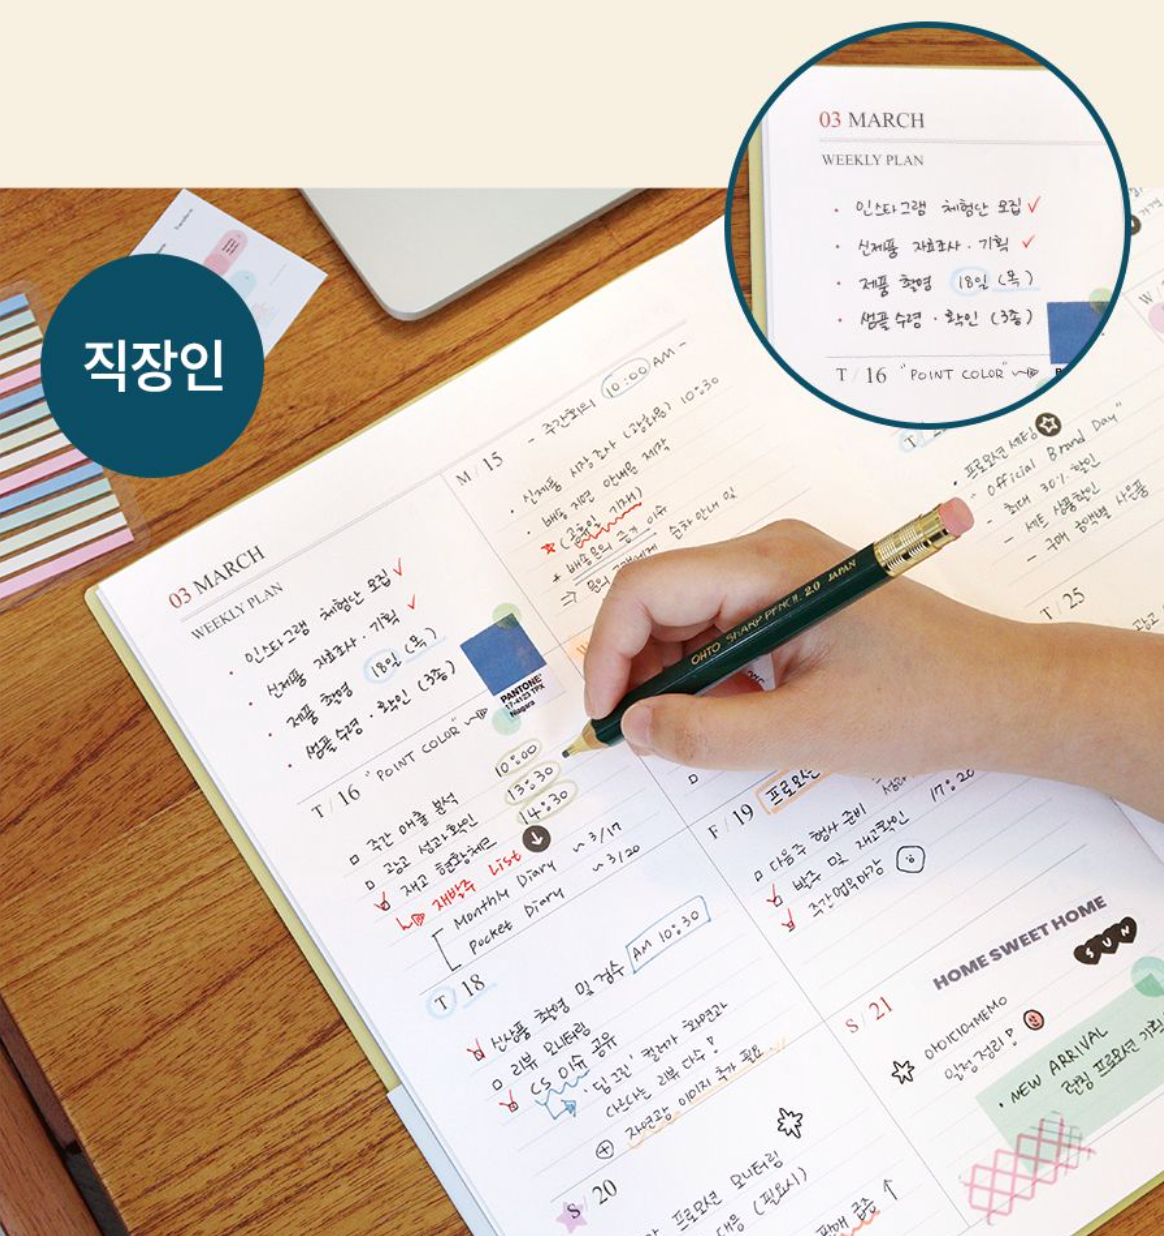 직장인
03 MARCH
WEEKLY PLAN
· 인스타그램 체험단 모집 ✓
· 신제품 자료조사 · 기획 ✓
· 제품 촬영 18일 (목)
· 샘플 수령 · 확인 (3종)
T / 16 "POINT COLOR"
03 MARCH
WEEKLY PLAN
· 인스타그램 체험단 모집 ✓
· 신제품 자료조사 · 기획 ✓
· 제품 촬영 18일 (목)
· 샘플 수령 · 확인 (3종)
PANTONE
17-4123 TPX
Niagara
T / 16 "POINT COLOR"
주간 매출 분석 10:00
광고 성과확인 13:30
재고 현황체크 14:30
재발주 List
Monthly Diary ~3/17
Pocket Diary ~3/20
T / 18
신상품 촬영 및 검수 AM 10:30
리뷰 모니터링
CS 이슈 공유
'딥그린' 컬러가 화면과
다르다는 리뷰 다수!
자연광 이미지 추가 필요
S / 20
프로모션 모니터링
대응 (필요시)
판매 급증 ↑
M / 15
- 주간회의 10:00 AM -
· 신제품 시장조사 (광화문) 10:30
· 배송 지연 안내문 제작
(공휴일 기재)
배송문의 증가 이슈
⇒ 문의 고객에게 순차 안내 및
OHTO SHARP PENCIL 2.0 JAPAN
F / 19 프로모션
17:20
다음주 행사 준비
발주 및 재고확인
주간업무마감
HOME SWEET HOME
SUN
S / 21
아이디어MEMO
일정정리!
· NEW ARRIVAL
런칭 프로모션 기획
· 프로모션 세팅
" Official Brand Day "
- 최대 30% 할인
- 세트 상품할인
- 구매 금액별 사은품
T / 25